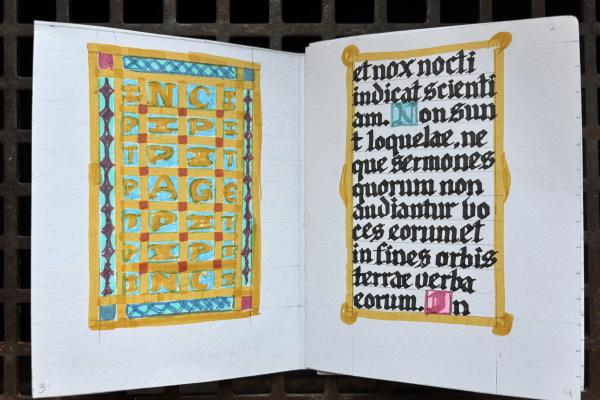 INCI
PIPI
TPIT
PAGE
TPIT
PIPI
INCI
3
et nox nocti
indicat scienti
am. Non sun
t loquelae, ne
que sermones
quorum non
audiantur vo
ces eorum et
in fines orbis
terrae verba
eorum. In